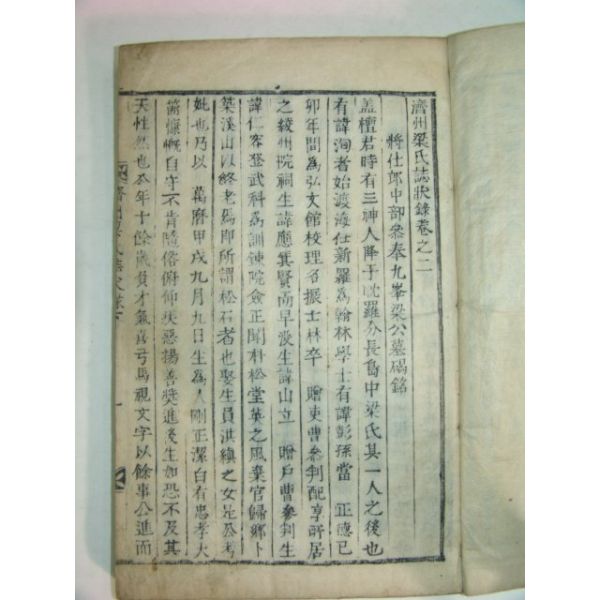 濟州梁氏誌狀錄卷之二
將仕郎中部參奉九峯梁公墓碣銘
盖檀君時有三神人降于耽羅分長島中梁氏其一人之後也
有諱洵者始渡海仕新羅爲翰林學士有諱彭孫當 正德己
卯年間爲弘文館校理名振士林卒 贈吏曹參判配享所居
之綾州院祠生諱應箕賢而早沒生諱山立 贈戶曹參判生
諱仁容登武科爲訓鍊院僉正聞朴松堂英之風棄官歸鄉卜
築溪山以終老焉卽所謂松石者也娶生員洪縝之女是公考
妣也乃以 萬曆甲戌九月九日生爲人剛正潔白有忠孝大
節慷慨自守不肯隨俗俯仰疾惡揚善獎進後生如恐不及其
天性然也公年十餘歲負才氣喜弓馬視文字以餘事公進而